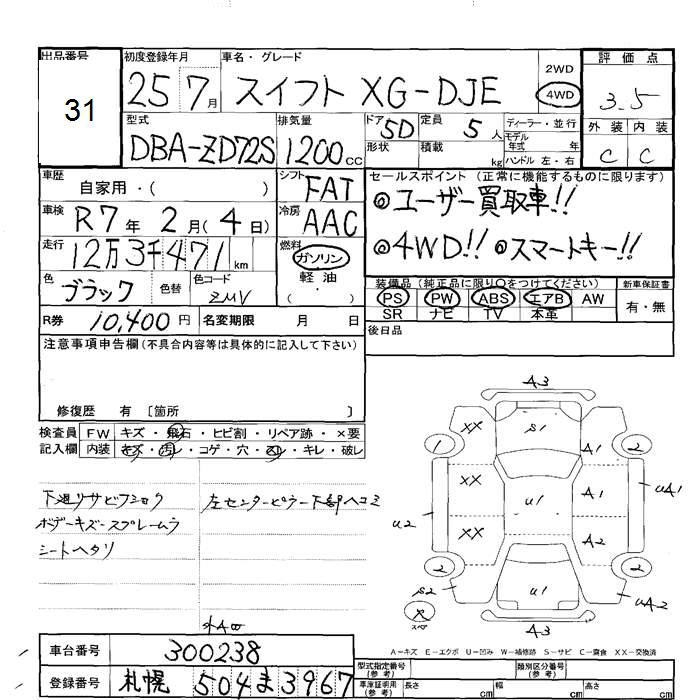 出品番号 初度登録年月 車名・グレード 2WD 評価点
31 25 7月 スイフト XG-DJE 4WD 3.5
型式 排気量 ドア 定員 ディーラー・並行 外装 内装
DBA-ZD72S 1200cc 5D 5人 モデル年式 年 C C
形状 積載 kg ハンドル 左・右
車歴 自家用・( ) シフト FAT セールスポイント (正常に機能するものに限ります)
車検 R7年 2月(4日) 冷房 AAC ◎ユーザー買取車!!
走行 12万3千471km 燃料 ガソリン ◎4WD!! ◎スマートキー!!
軽油
( ・ )
色 ブラック 色替 色コード ZMV 装備品 (純正品に限り○をつけてください) 新車保証書
PS PW ABS エアB AW 有・無
R券 10,400円 名変期限 月 日 SR ナビ TV 本革
注意事項申告欄(不具合内容等は具体的に記入して下さい) 後日品
修復歴 有 〔箇所 〕
検査員 FW キズ・飛石・ヒビ割・リペア跡・×要
記入欄 内装 キズ・汚レ・コゲ・穴・スレ・キレ・破レ
下廻リサビフショク 左センターピラー下部ヘコミ
ボデーキズ-スプレームラ
シートヘタリ
A3
XX S1
1 2
A1
XX U1 A1 UA1
U2
XX A2
2 2
S2 U1 UA2
A3
A-キズ E-エクボ U-凹み W-補修跡 S-サビ C-腐食 XX-交換済
車台番号 300238 型式指定番号(参考) 類別区分番号(参考)
登録番号 札幌 504 ま 3967 車庫証明用(参考) 長さ cm 幅 cm 高さ cm